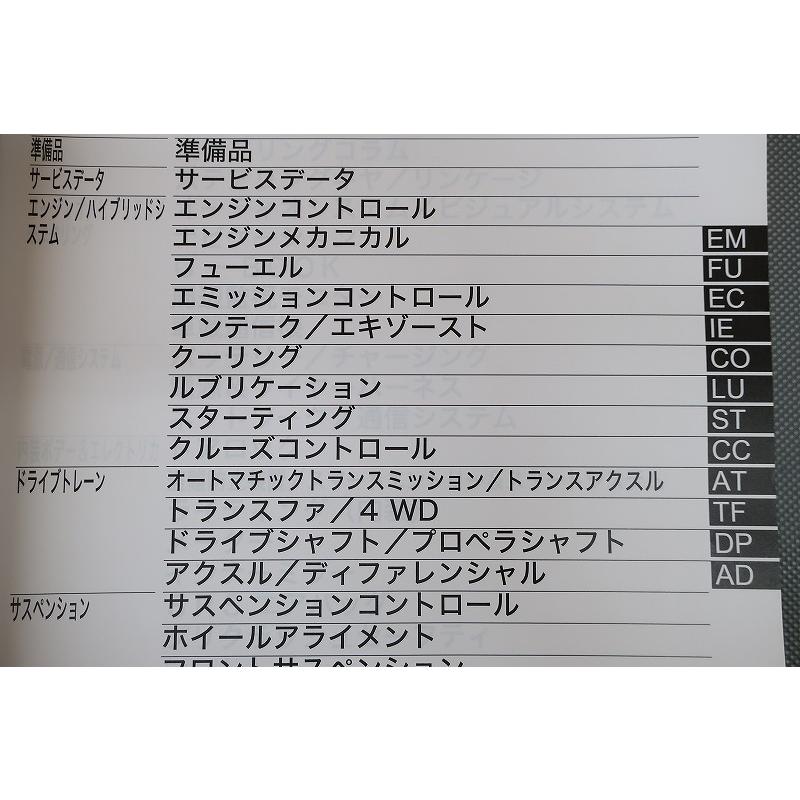 準備品 準備品
サービスデータ サービスデータ
エンジン／ハイブリッドシ エンジンコントロール
ステム エンジンメカニカル EM
フューエル FU
エミッションコントロール EC
インテーク／エキゾースト IE
クーリング CO
ルブリケーション LU
スターティング ST
クルーズコントロール CC
ドライブトレーン オートマチックトランスミッション／トランスアクスル AT
トランスファ／4 WD TF
ドライブシャフト／プロペラシャフト DP
アクスル／ディファレンシャル AD
サスペンション サスペンションコントロール
ホイールアライメント
フロントサスペンション